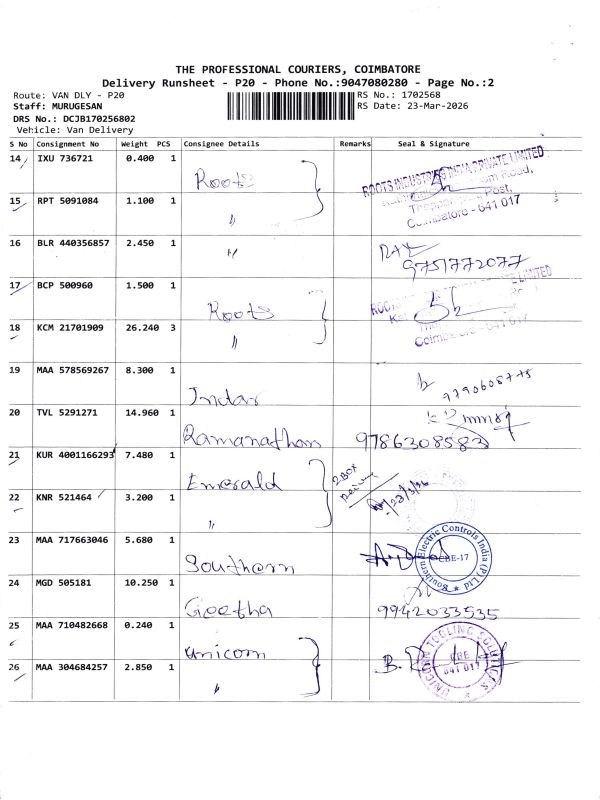 THE PROFESSIONAL COURIERS, COIMBATORE
Delivery Runsheet - P20 - Phone No.:9047080280 - Page No.:2
Route: VAN DLY - P20
RS No.: 1702568
Staff: MURUGESAN
RS Date: 23-Mar-2026
DRS No.: DCJB170256802
Vehicle: Van Delivery
S No Consignment No Weight PCS Consignee Details Remarks Seal & Signature
14 IXU 736721 0.400 1 Roots ROOTS INDUSTRIES INDIA PRIVATE LIMITED
Road,
Post,
Coimbatore - 641 017
15 RPT 5091084 1.100 1 "
16 BLR 440356857 2.450 1 "
9751772077
17 BCP 500960 1.500 1 Roots ROOTS LIMITED
Coimbatore - 641 017
18 KCM 21701909 26.240 3 "
19 MAA 578569267 8.300 1 Indar
20 TVL 5291271 14.960 1 Ramanathan 9786308583
21 KUR 4001166293 7.480 1 Emerald 2 Box
23/3/26
22 KNR 521464 3.200 1 "
23 MAA 717663046 5.680 1 Southern Southern Electric Controls India (P) Ltd
CBE-17
24 MGD 505181 10.250 1 Geetha 9942033535
25 MAA 710482668 0.240 1 Unicorn UNICORN TOOLING SOLUTIONS
CBE
641 017
26 MAA 304684257 2.850 1 " B.